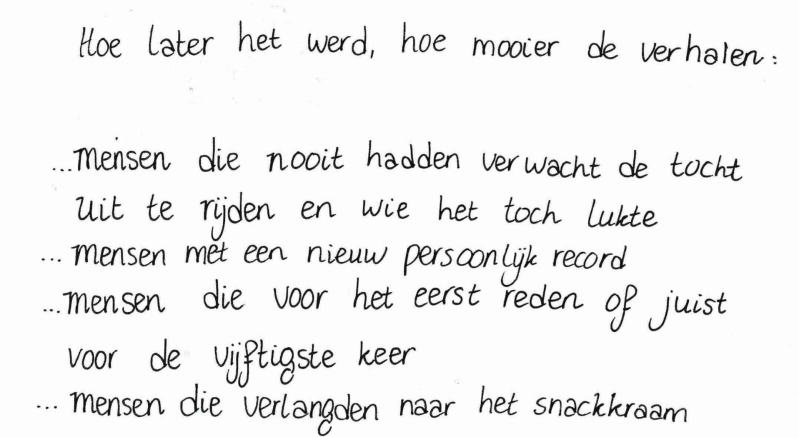 Hoe later het werd, hoe mooier de verhalen:
...mensen die nooit hadden verwacht de tocht
uit te rijden en wie het toch lukte
... mensen met een nieuw persoonlijk record
...mensen die voor het eerst reden of juist
voor de vijftigste keer
... mensen die verlangden naar het snackkraam